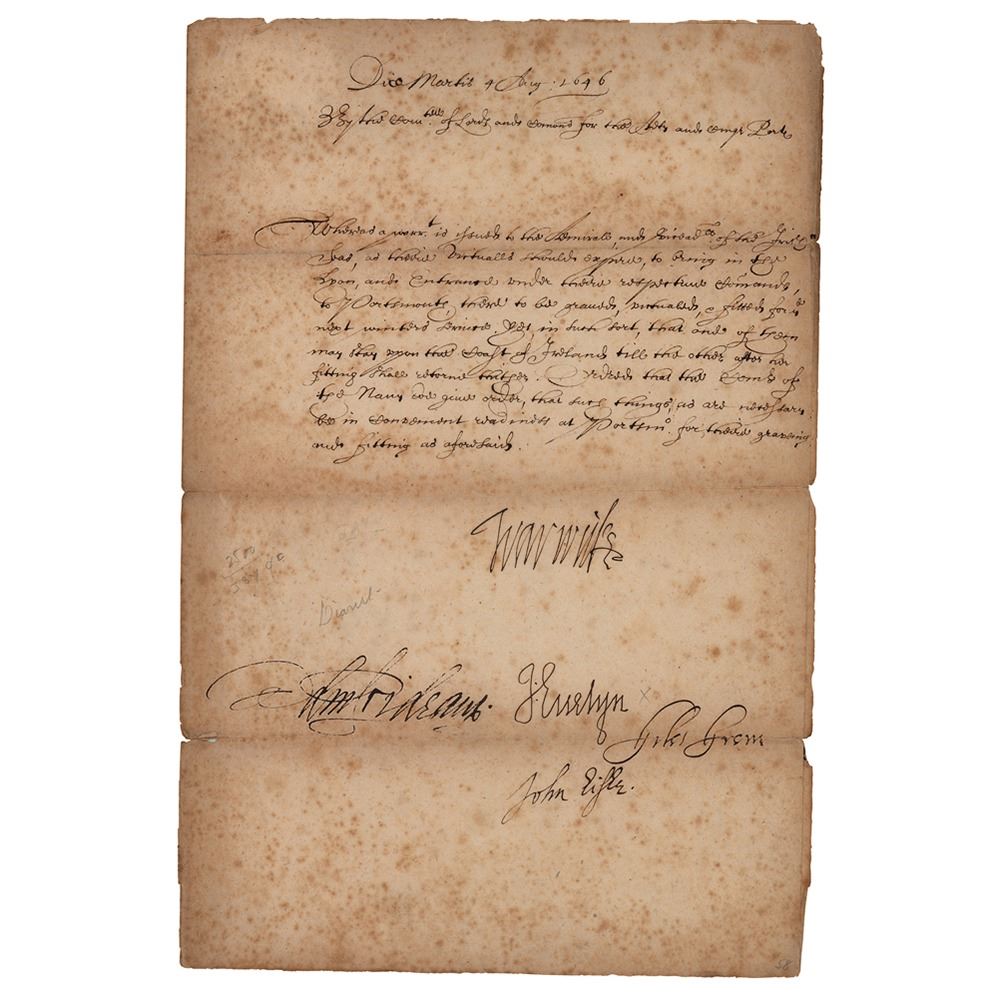 Die Martis 4 Aug: 1646
By the Com:tee of Lords and Comons for the Adm and Cinqz Ports
Whereas a warr.t is issued to the Admirall, and Vicead:ll of the Irish
Seas, as theire Victualls should expire, to bring in the
Lyon, and Entrance under theire respective Comands,
to Portsmouth, there to be graved, victualed, & fitted for ye
next winters service. Yet, in such sort, that one of them
may stay upon the Coast of Ireland till the other after her
fitting shall retorne thither. Ordred that the Comrs of
the Navy doe give order, that such things, as are necessary
be in convenient readiness at Portsmo: for theire graveing
and fitting as aforesaid.
Warwick
2500
J: Evelyn x
Giles Green
John Lisle.
58